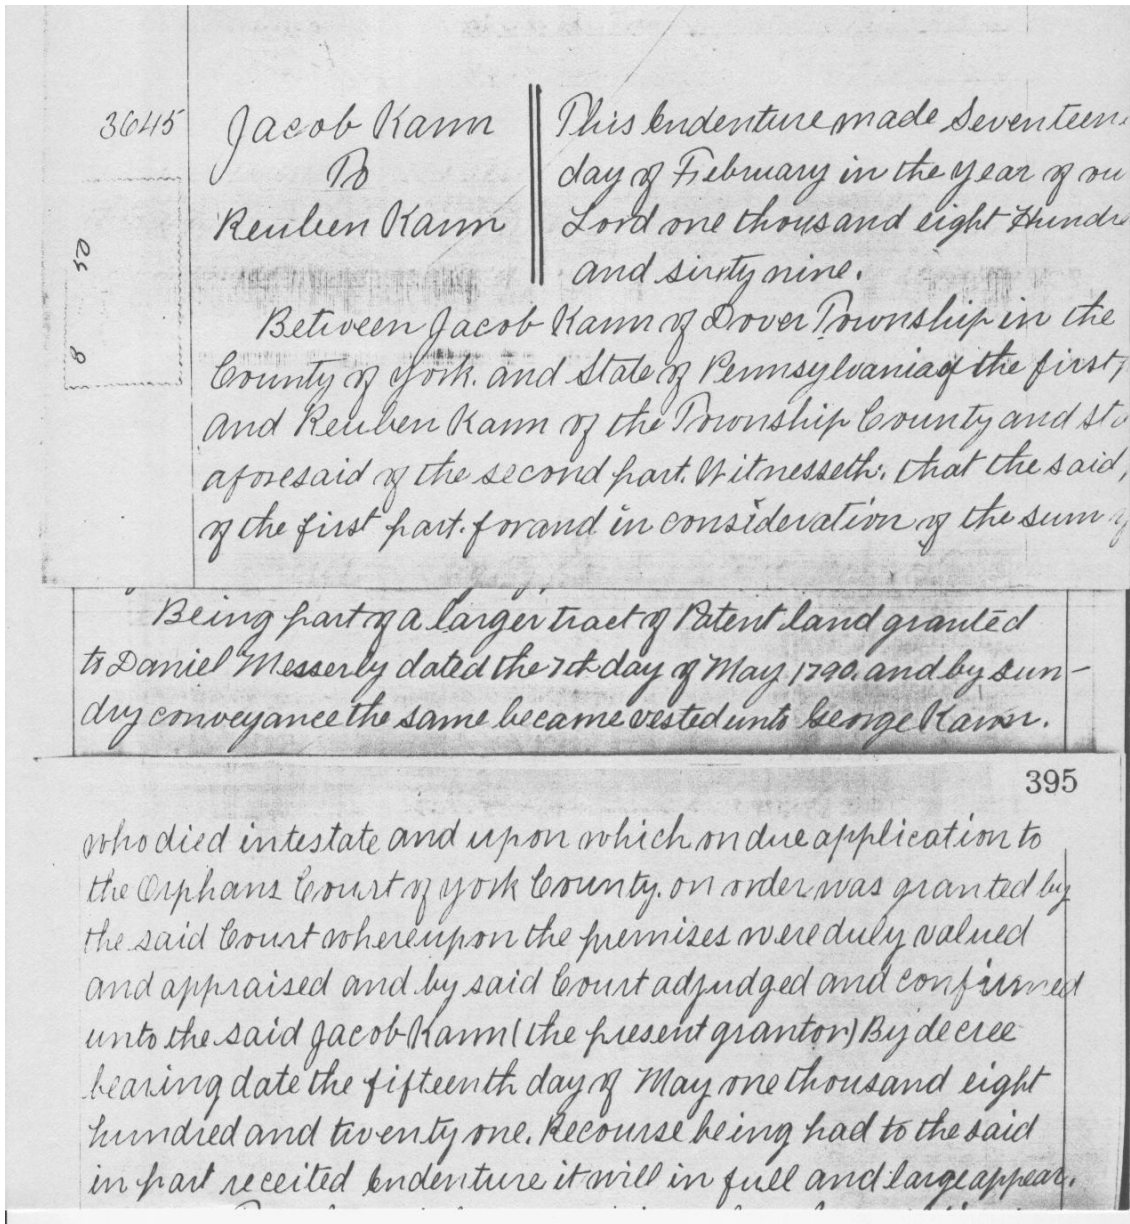 3645
Jacob Kann
To
Reuben Kann
This Endenture made Seventeen
day of February in the year of ou
Lord one thousand eight Hundre
and sixty nine.
50
8
Between Jacob Kann of Dover Township in the
County of York. and State of Pennsylvania of the first
and Reuben Kann of the Township County and sta
aforesaid of the second part. Witnesseth: that the said,
of the first part. for and in consideration of the sum of
Being part of a larger tract of Patent land granted
to Daniel Messerly dated the day of May 1790. and by sun-
dry conveyance the same became vested unto George Kann.
395
who died intestate and upon which on due application to
the Orphans Court of York County. on order was granted by
the said Court whereupon the premises were duly valued
and appraised and by said Court adjudged and confirmed
unto the said Jacob Kann (the present grantor) By decree
bearing date the fifteenth day of May one thousand eight
hundred and twenty one. Recourse being had to the said
in part receited Endenture it will in full and large appear.